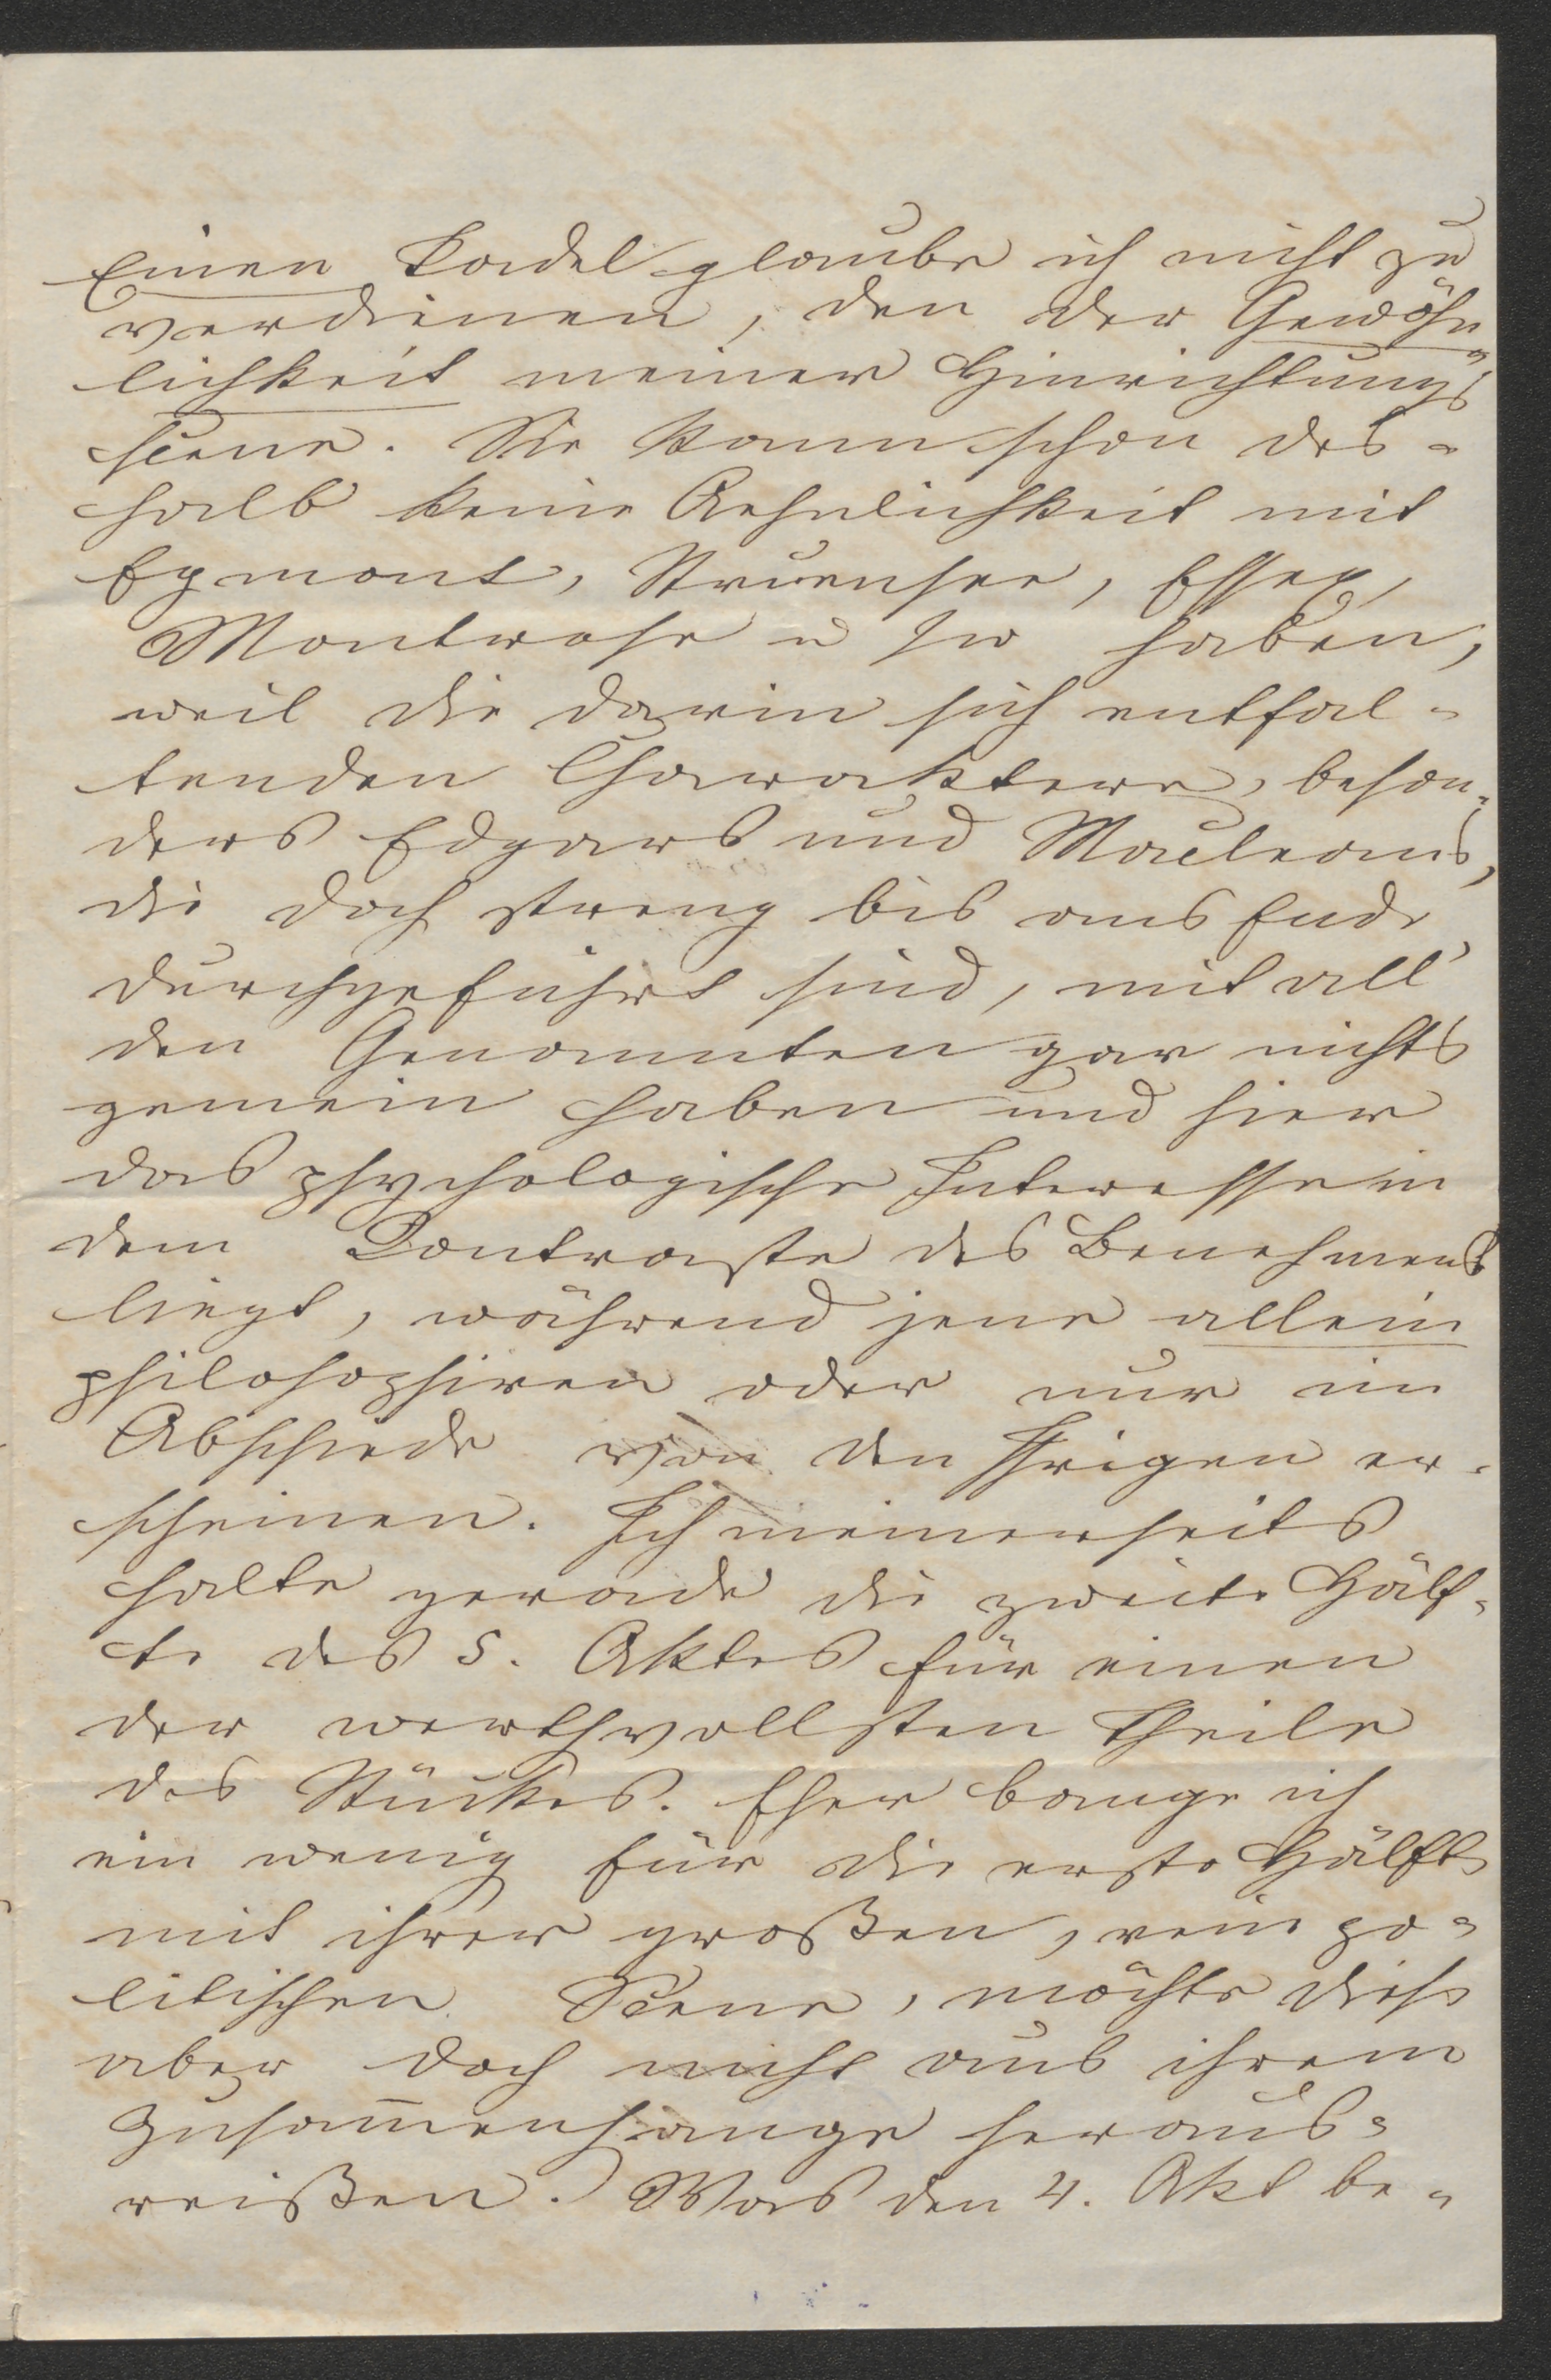 Einen Tadel glaube ich nicht zu
verdienen, den der Gewöhn-
lichkeit meiner Hinrichtungs
scene. Sie kann schon des-
halb keine Aehnlichkeit mit
Egmont, Struensee, Essex,
Montrose u sw haben,
weil die darin sich entfal-
tenden Charaktere, beson-
ders Edgars und Macleans,
die doch streng bis ans Ende
durchgeführt sind, mit all'
den Genannten gar nichts
gemein haben und hier
das psychologische Interesse in
dem Contraste des Benehmens
liegt, während jene allein
philosophiren oder nur im
Abschiede von den Ihrigen er-
scheinen. Ich meinerseits
halte gerade die zweite Hälf-
te des 5. Aktes für einen
der werthvollsten Theile
des Stückes. Eher bange ich
ein wenig für die erste Hälfte
mit ihrer großen, rein po-
litischen Scene, möchte diese
aber doch nicht aus ihrem
Zusam̅enhange heraus-
reißen. Was den 4. Akt be-